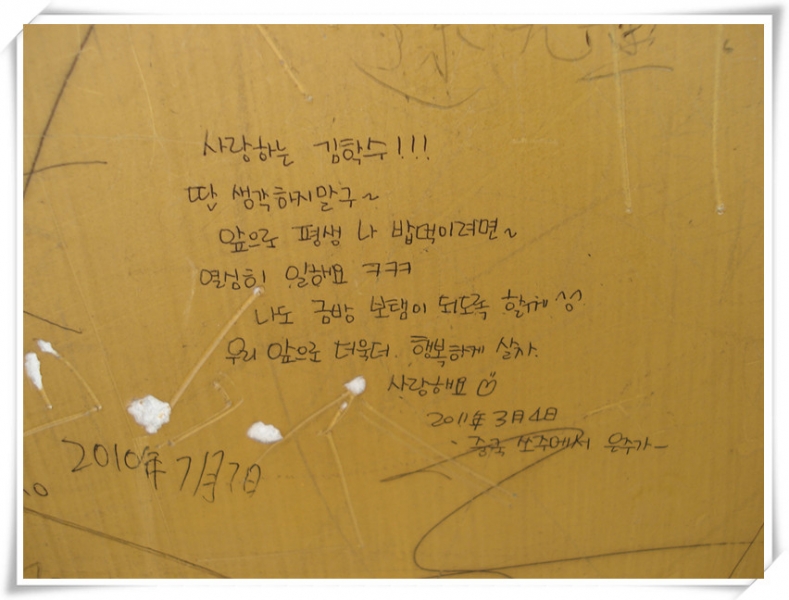 사랑하는 김학수!!!
딴 생각하지말구~
앞으로 평생 나 밥먹이려면~
열심히 일해요 ㅋㅋㅋ
나도 금방 보탬이 되도록 할게
우리 앞으로 더욱더. 행복하게 살자.
사랑해요
2011年 3月 4日
중국 쏘주에서 은주가-
2010年 7月 7日